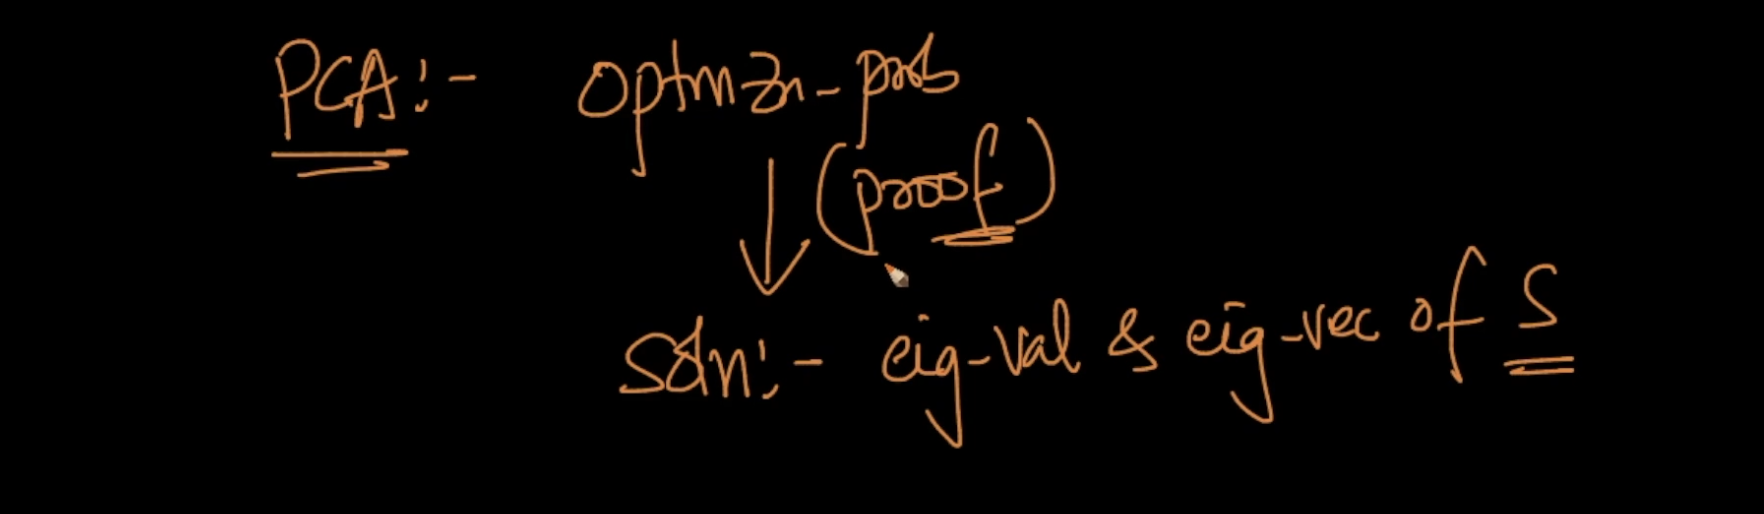 PCA:- Optmzn-prob
(proof)
Soln:- eig-val & eig-vec of S